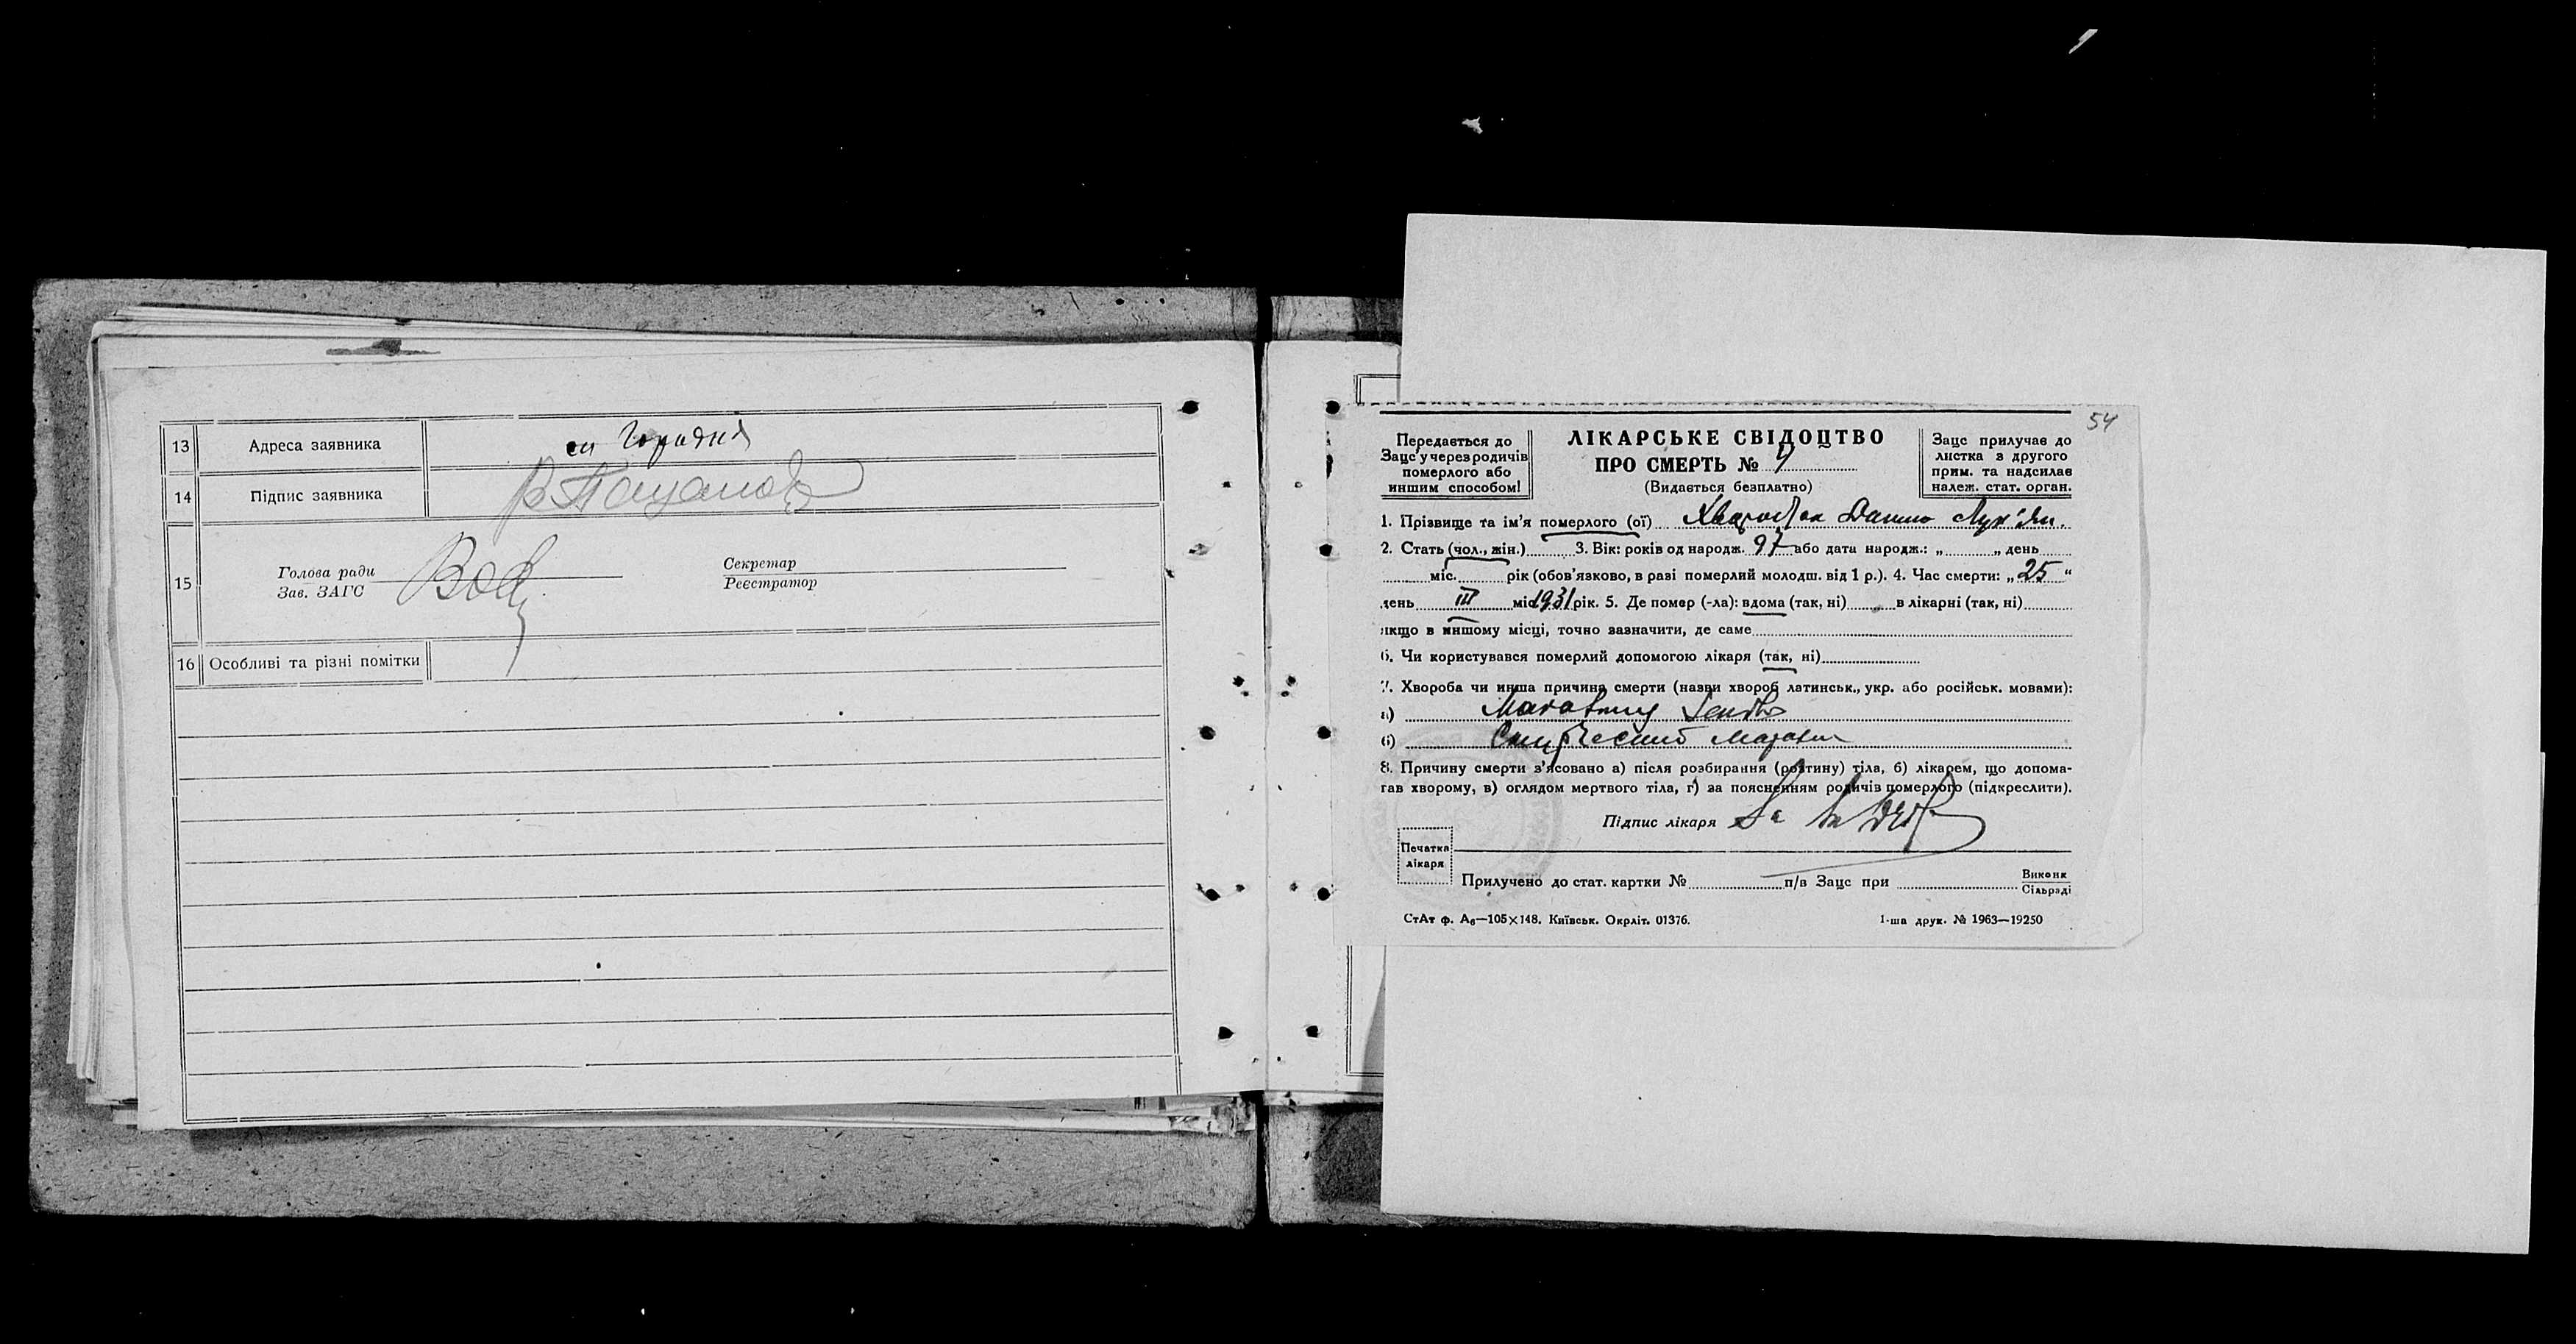 13 Адреса заявника
14 Підпис заявника
15 Голова ради
Зав. ЗАГС
Секретар
Реєстратор
16 Особливі та різні помітки
54
Передається до
Зацс'у через родичів
померлого або
иншим способом!
ЛІКАРСЬКЕ СВІДОЦТВО
ПРО СМЕРТЬ №
(Видається безплатно)
Зацс прилучає до
листка з другого
прим. та надсилає
належ. стат. орган.
1. Прізвище та ім'я померлого (ої) Данило Лук'ян.
2. Стать (чол., жін.) 3. Вік: років од народж. 97 або дата народж.: „ „ день
міс. рік (обов'язково, в разі померлий молодш. від 1 р.). 4. Час смерти: „25“
день III міс 1931 рік. 5. Де помер (-ла): вдома (так, ні) в лікарні (так, ні)
якщо в иншому місці, точно зазначити, де саме
6. Чи користувався померлий допомогою лікаря (так, ні)
7. Хвороба чи инша причина смерти (назви хвороб латинськ., укр. або російськ. мовами):
а)
б)
8. Причину смерти з'ясовано а) після розбирання (розтину) тіла, б) лікарем, що допома-
гав хворому, в) оглядом мертвого тіла, г) за поясненням родичів померлого (підкреслити).
Підпис лікаря
Печатка
лікаря
Прилучено до стат. картки № п/в Зацс при Виконк
Сільраді
СтАт ф. А6—105×148. Київськ. Окрліт. 01376.
1-ша друк. № 1963—19250